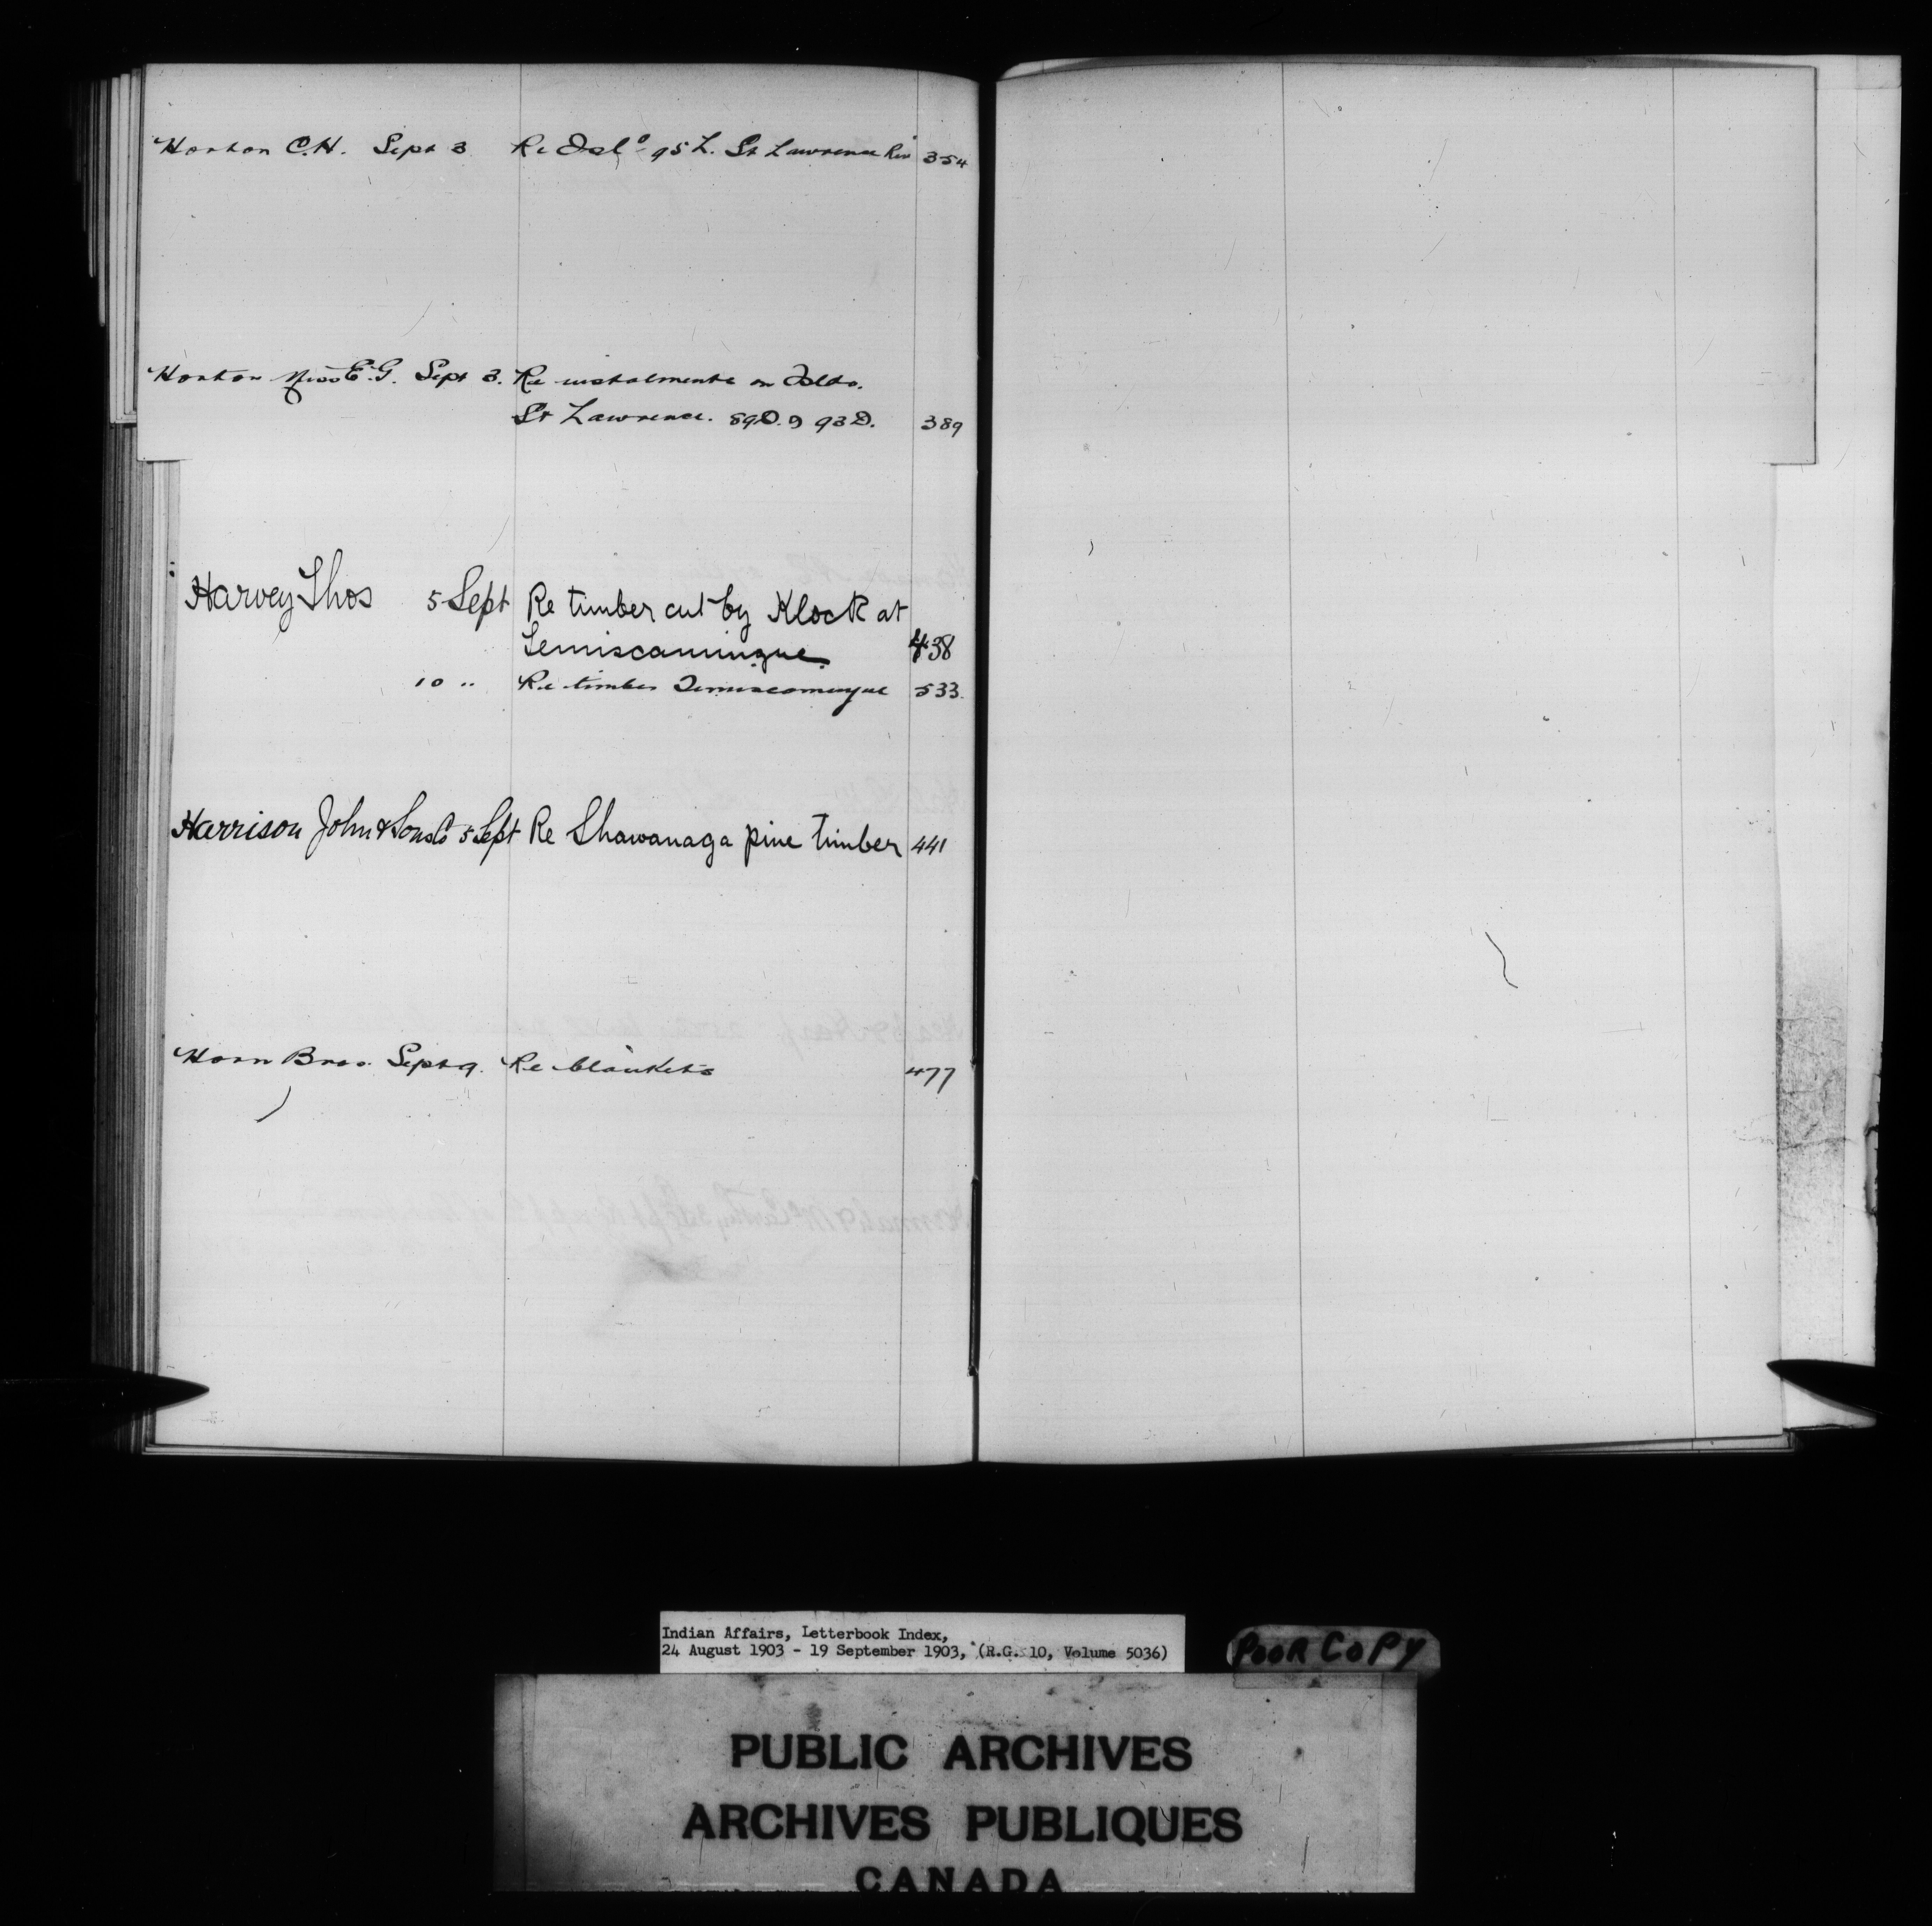 Horton C.H. Sept 3 Re Isld 95 L. St Lawrence Riv 354
Horton Miss E.G. Sept 3. Re instalments on Islds.
St Lawrence. 89D. & 93D. 389
Harvey Thos 5 Sept Re timber cut by Klock at
Temiscamingue 438
10 " Re timber Temiscamingue 533.
Harrison John & Sons Co 5 Sept Re Shawanaga pine timber 441
Horn Bros. Sept 9. Re blankets 477
Indian Affairs, Letterbook Index,
24 August 1903 - 19 September 1903, (R.G. 10, Volume 5036)
POOR COPY
PUBLIC ARCHIVES
ARCHIVES PUBLIQUES
CANADA